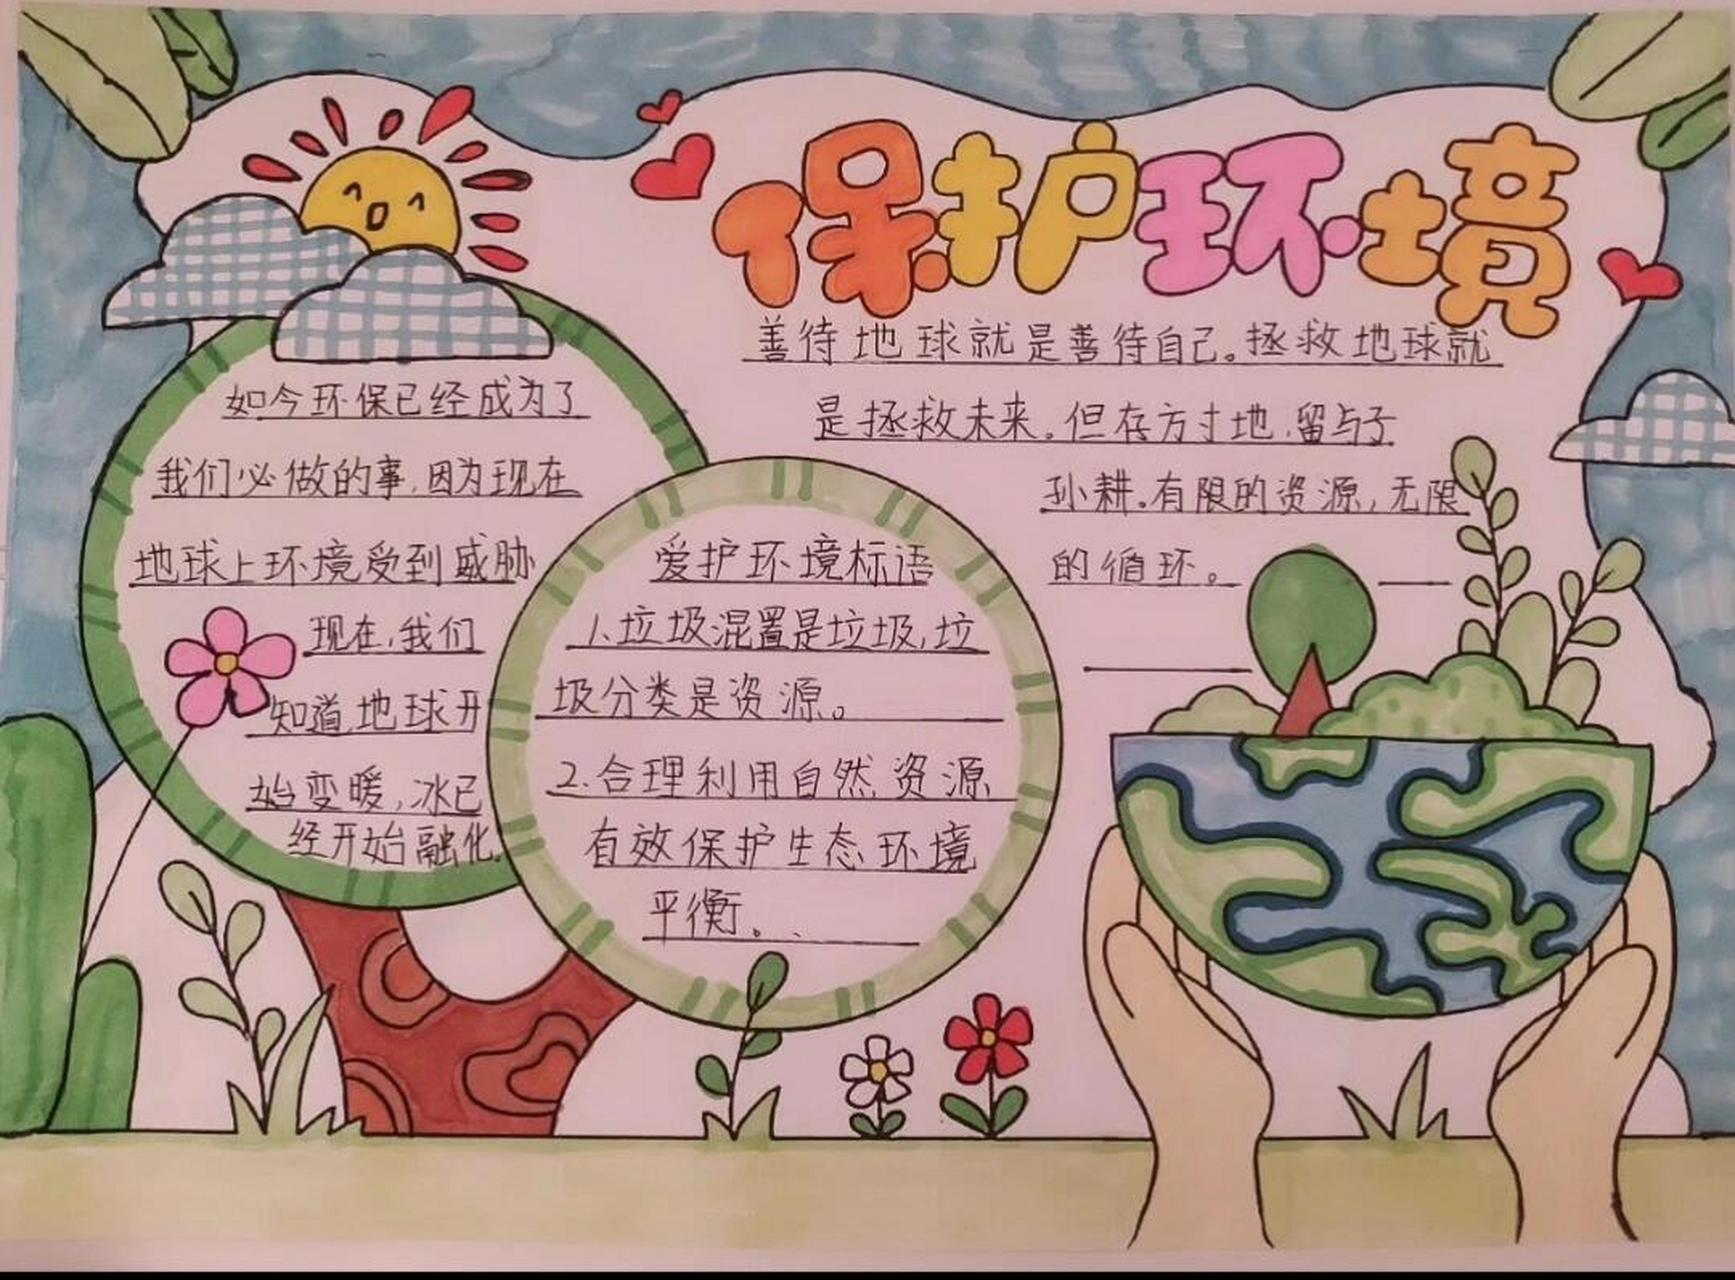 保护环境
善待地球就是善待自己。拯救地球就
是拯救未来。但存方寸地,留与子
孙耕。有限的资源,无限
的循环。
如今环保已经成为了
我们必做的事,因为现在
地球上环境受到威胁
现在,我们
知道地球开
始变暖,冰已
经开始融化。
爱护环境标语
1.垃圾混置是垃圾,垃
圾分类是资源。
2.合理利用自然资源
有效保护生态环境
平衡。